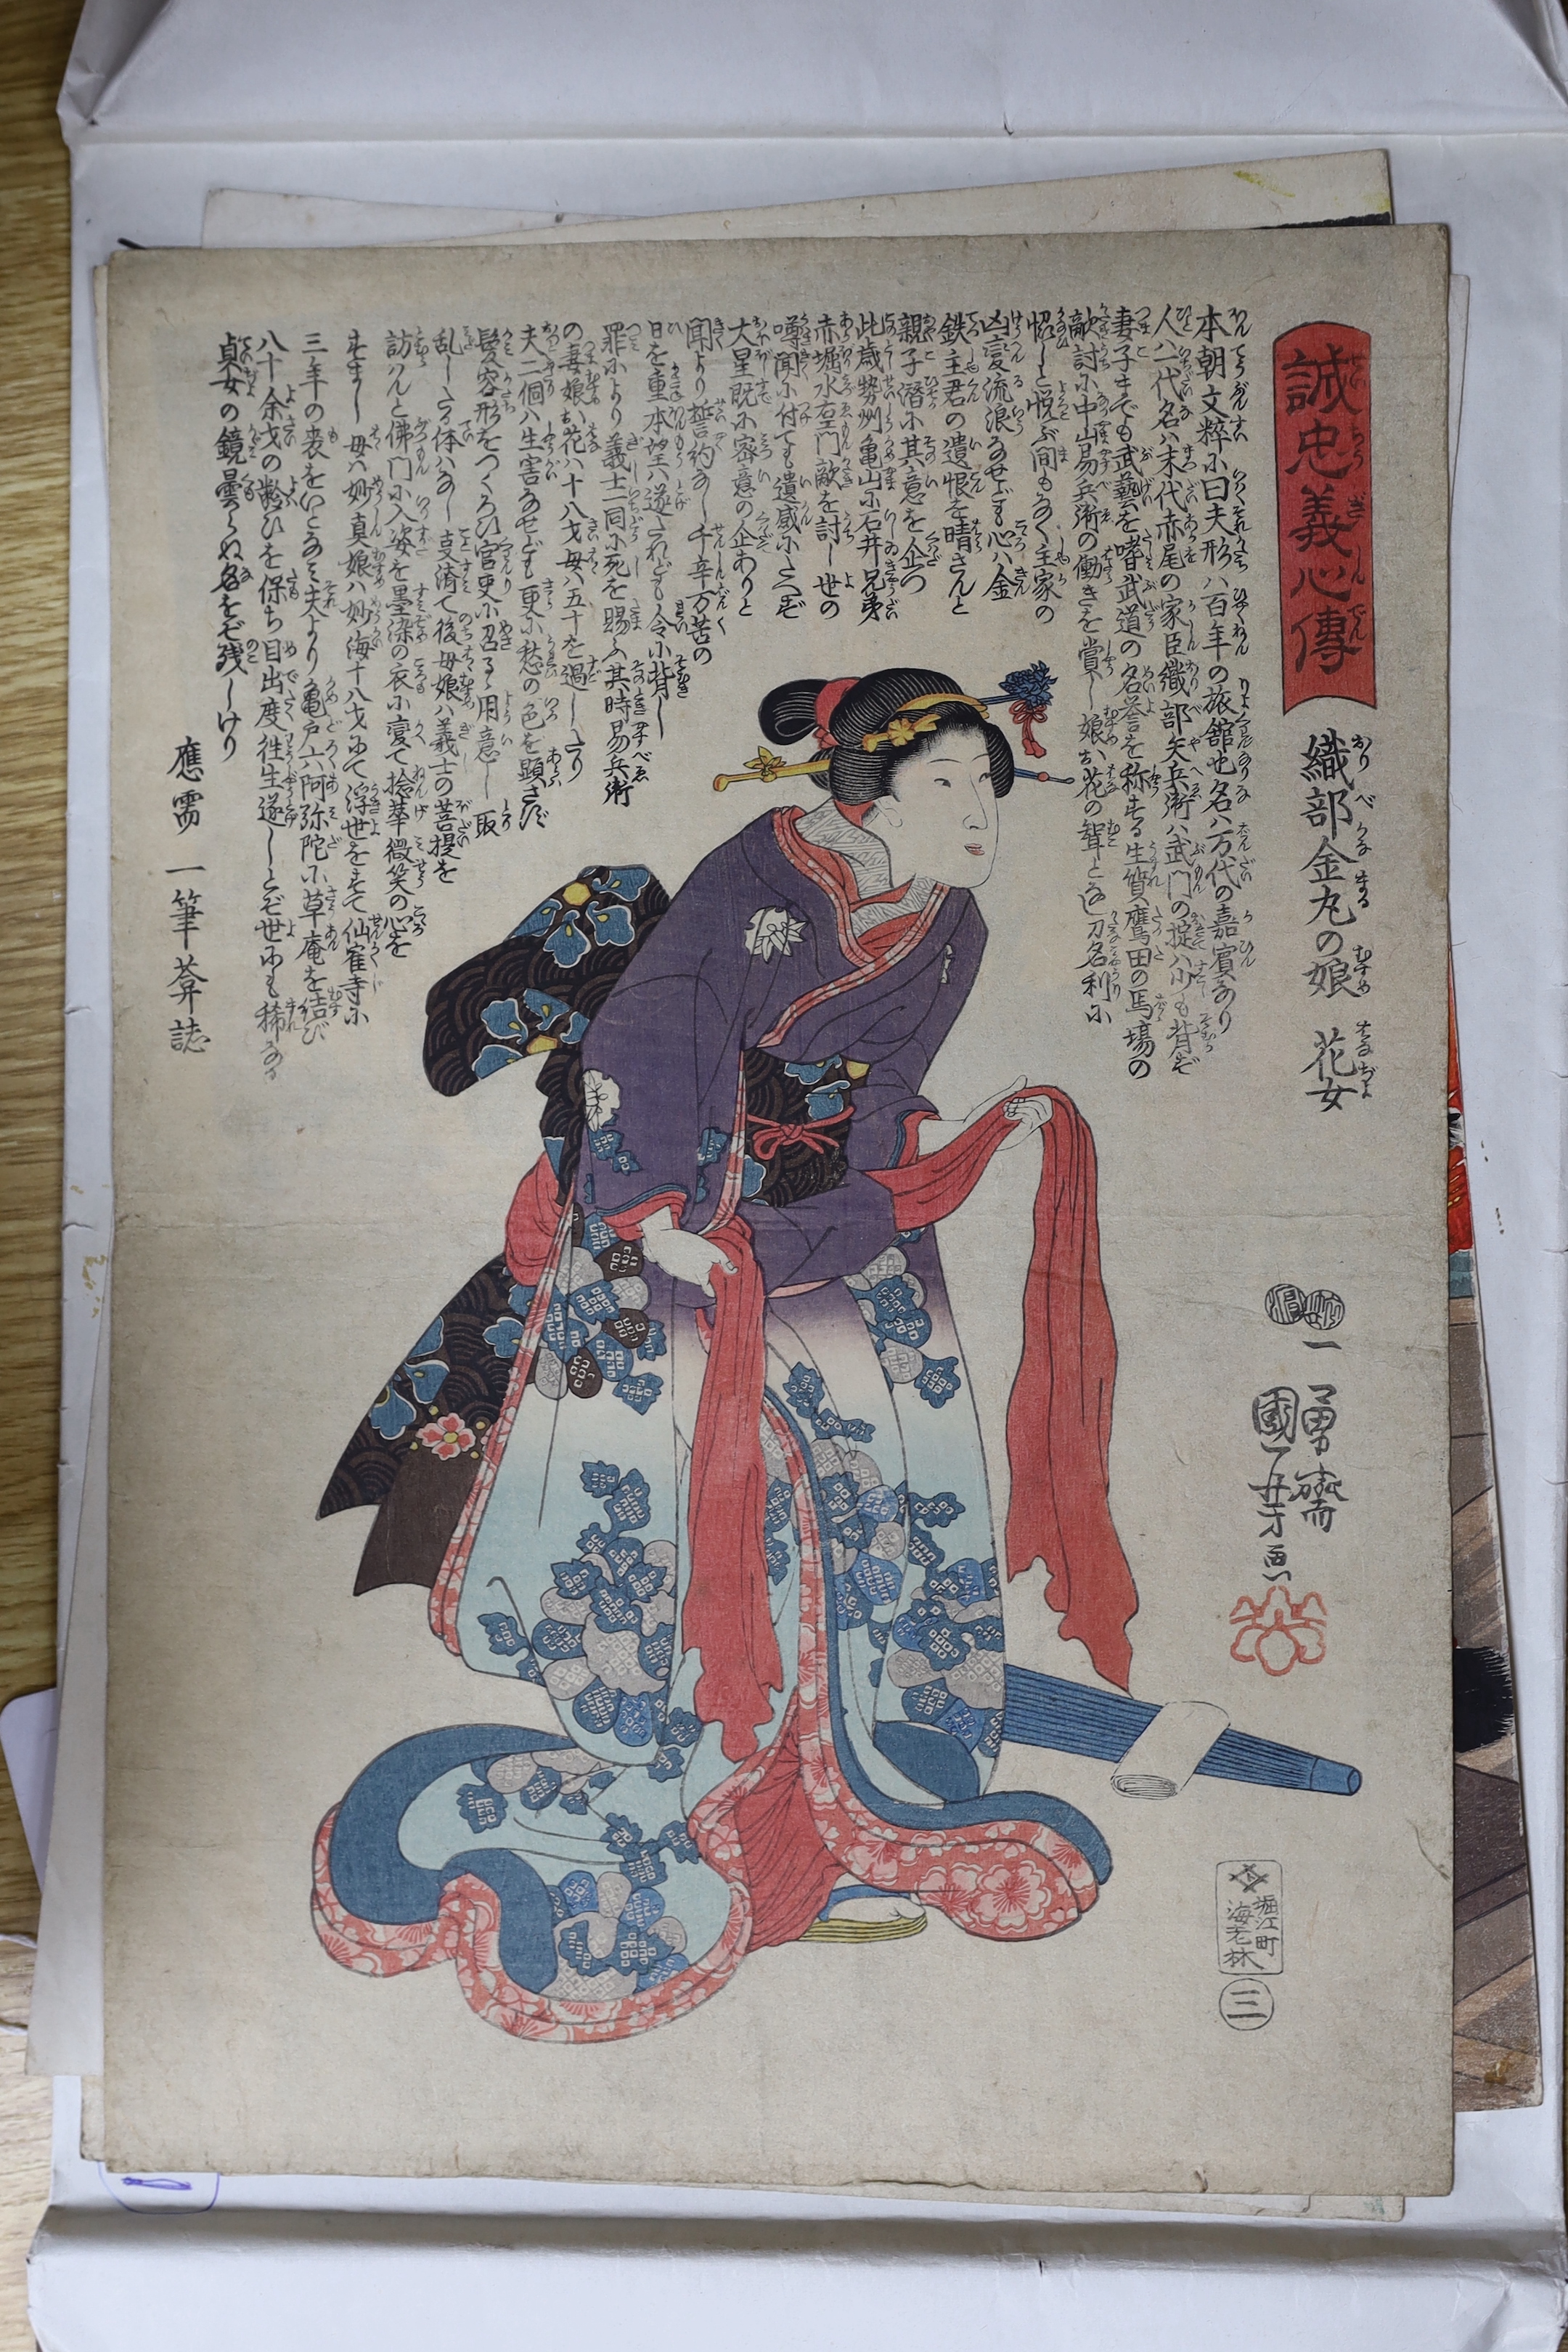 誠忠義心傳
織部金丸の娘 花女
本朝文粹に曰夫形ハ百年の旅舘也名ハ万代の嘉賓なり
人ハ一代名ハ末代赤尾の家臣織部矢兵衛ハ武門の掟ハ少も背ず
妻子までも武藝を嗜武道の名誉を称する生質鷹田の馬場の
敵討に中山易兵衛の働きを賞し娘お花の聟となし刀名利に
悦ぶ間もなく主家の
凶変流浪なせども心ハ金
鉄主君の遺恨を晴さんと
親子潜に其意を企つ
此歳勢州亀山に石井兄弟
赤堀水右衛門敵を討し世の
噂聞に付ても遺感にたへず
大星既に密意の企ありと
聞より誓約なし千辛万苦の
日を重本望ハ遂されども令に背し
罪により義士一同に死を賜ふ其時易兵衛
の妻娘お花ハ十八才母ハ五十を過したり
夫二個ハ生害なせども更に愁の色を顕さず
髪容形をつくろひ官吏に召るゝ用意し取
乱したる体ハなし事済て後母娘ハ義士の菩提を
訪ハんと佛門に入姿を墨染の衣に変て拈華微笑の心を
母ハ妙真娘ハ妙海十八才にて浮世をすて仙寉寺に
三年の喪をいとなミ夫より亀戸六阿弥陀に草庵を結び
八十余才の齢ひを保ち目出度往生遂しとぞ世にも稀なる
貞女の鏡曇らぬ名をぞ残しける
應需 一筆葊誌
一勇齋
國芳画
堀江町
海老林
三